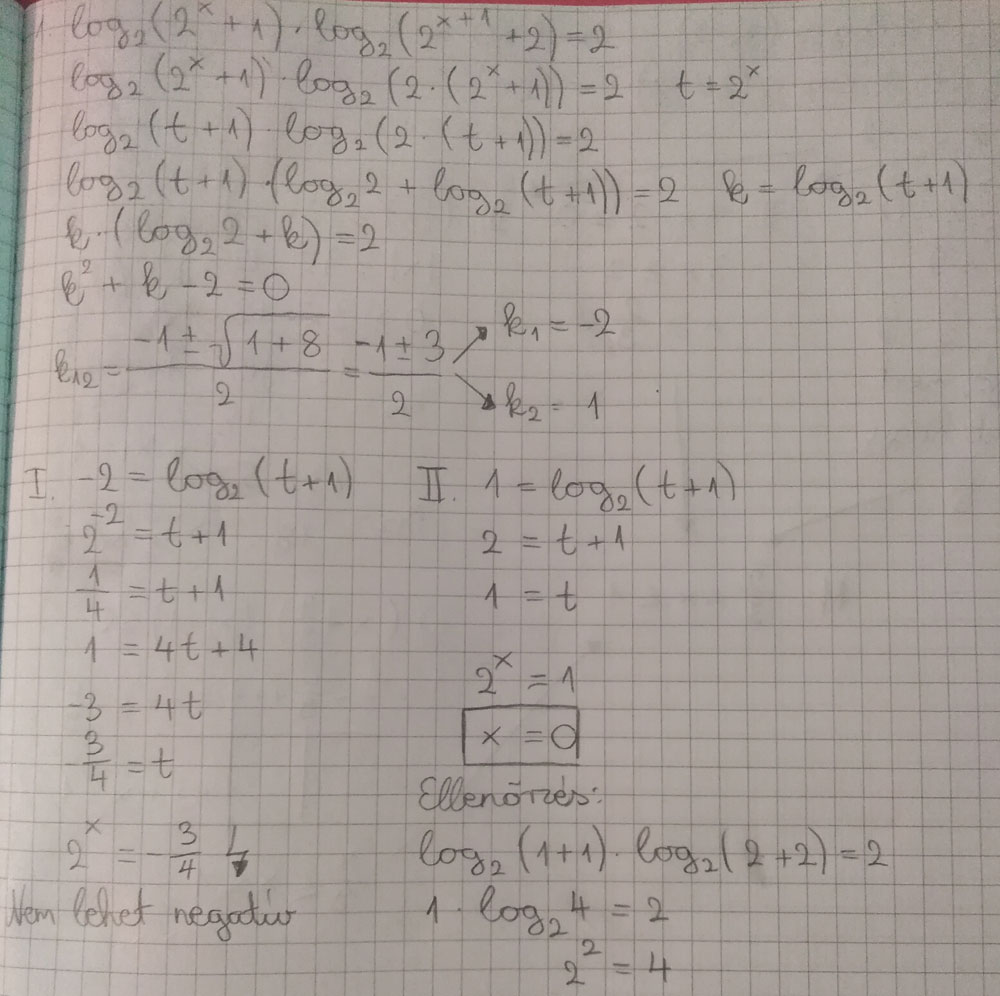 1. log₂(2ˣ + 1) · log₂(2ˣ⁺¹ + 2) = 2
log₂(2ˣ + 1) · log₂(2 · (2ˣ + 1)) = 2 t = 2ˣ
log₂(t + 1) · log₂(2 · (t + 1)) = 2
log₂(t + 1) · (log₂2 + log₂(t + 1)) = 2 k = log₂(t + 1)
k · (log₂2 + k) = 2
k² + k - 2 = 0
k₁₂ = (-1 ± √(1 + 8))/2 = (-1 ± 3)/2
k₁ = -2
k₂ = 1
I. -2 = log₂(t + 1)
2⁻² = t + 1
1/4 = t + 1
1 = 4t + 4
-3 = 4t
-3/4 = t
2ˣ = -3/4 ↯
Nem lehet negatív
II. 1 = log₂(t + 1)
2 = t + 1
1 = t
2ˣ = 1
x = 0
Ellenőrzés:
log₂(1 + 1) · log₂(2 + 2) = 2
1 · log₂4 = 2
2² = 4